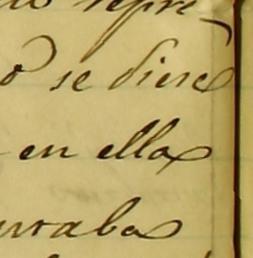 repre-
se diese
en ella
uraba